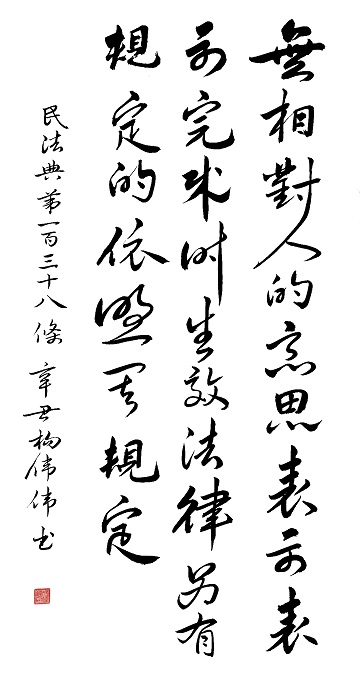 無相對人的意思表示表
示完成时生效法律另有
規定的依照其規定
民法典第一百三十八條 辛丑杨伟伟书